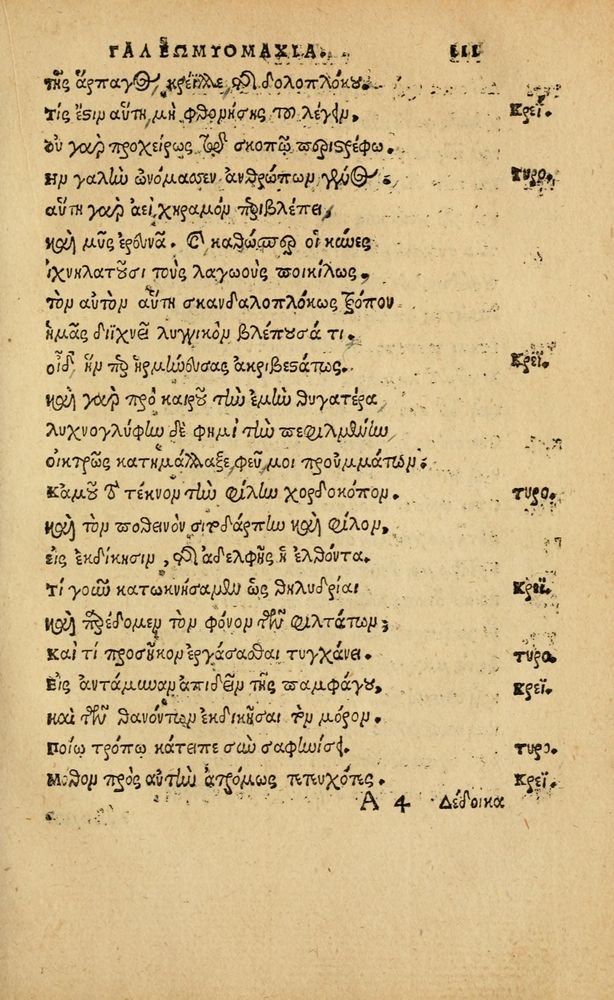 ΓΑΛΕΩΜΥΟΜΑΧΙΑ. III
τῆς ἅρπαγος, κρέϊλλε, καὶ δολοπλόκου.
Τίς ἔστιν αὕτη, μὴ φθονήσῃς τοῦ λέγειν, Κρεΐ.
Οὐ γὰρ προχείρως τὸν σκοπὸν περιστρέφω.
Ἣν γαλῆν ὠνόμασεν ἀνθρώπων γένος, τυρο.
αὕτη γὰρ ἀεὶ χηραμὸν περιβλέπει,
καὶ μῦς ἐρευνᾷ. καὶ καθώσπερ οἱ κύνες
ἰχνηλατοῦσι τοὺς λαγωοὺς ποικίλως,
τὸν αὐτὸν αὕτη σκανδαλοπλόκως τρόπον
ἡμᾶς διϊχνεῖ λυγγικὸν βλέπουσά τι.
οἶδ' ἣν περ ἡρμήνευσας ἀκριβεστάτως. Κρεΐ.
καὶ γὰρ πρὸ καιροῦ τὴν ἐμὴν θυγατέρα
λυχνογλύφην δὲ φημὶ τὴν πεφιλμένην
οἰκτρῶς κατημάλλαξε, φεῦ μοι προὐμμάτων.
Κἀμοῦ τέκνον τὴν φίλην χορδοκόπον. τυρο.
καὶ τὸν ποθεινὸν σιτοδάρπτην καὶ φίλον,
εἰς ἐκδίκησιν, τῆς ἀδελφῆς ἢ ἐλθόντα.
Τί γοῦν κατωκνήσαμεν ὡς θηλυδρίαι Κρεΐ.
καὶ παρέδομεν τὸν φόνον τῶν φιλτάτων;
Καὶ τί προσῆκον ἐργάσασθαι τυγχάνει. τυρο.
Εἰς ἀντάμυναν ἀπιδεῖν τῆς παμφάγου, Κρεΐ.
καὶ τῶν θανόντων ἐκδικῆσαι τὸν μόρον.
Ποίῳ τρόπῳ κάτειπε σὺν σαφηνίσει. τυρο.
Μόθον πρὸς αὐτὴν ἀτρόμως πεπυχότες. Κρεΐ.
A 4 Δέδοικα